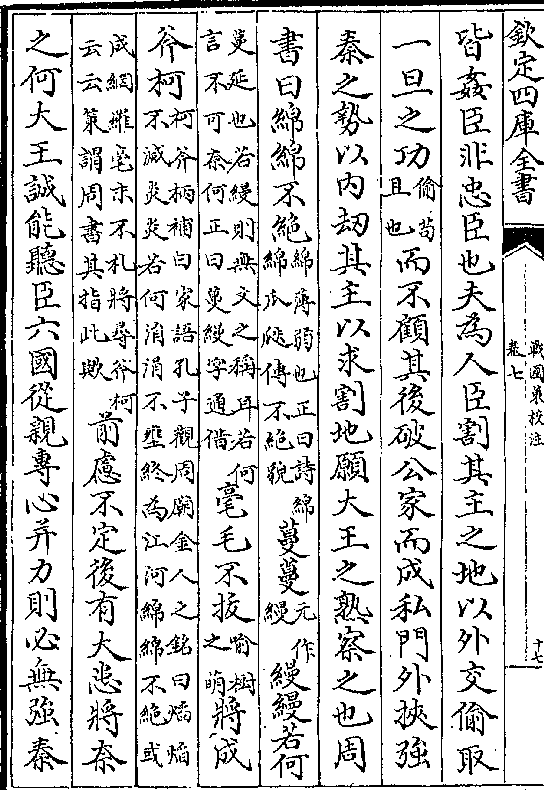 欽定四庫全書
戰國策校注
卷七
十七
皆姦臣非忠臣也夫為人臣割其主之地以外交偷取
一旦之功偷苟且也而不顧其後破公家而成私門外挾強
秦之勢以内劫其主以求割地願大王之熟察之也周
書曰綿綿不絶綿薄弱也正曰詩綿綿瓜瓞傳不絶貌蔓蔓元作縵縵縵若何
蔓延也若縵則無文之稱耳若何言不可奈何正曰蔓縵字通借毫毛不拔喻樹之萌將成
斧柯柯斧柄補曰家語孔子觀周廟金人之銘曰熖熖不滅炎炎若何涓涓不壅終為江河綿綿不絶或
成網羅毫末不札將尋斧柯云云策謂周書其指此歟前慮不定後有大患將奈
之何大王誠能聽臣六國從親專心并力則必無強秦